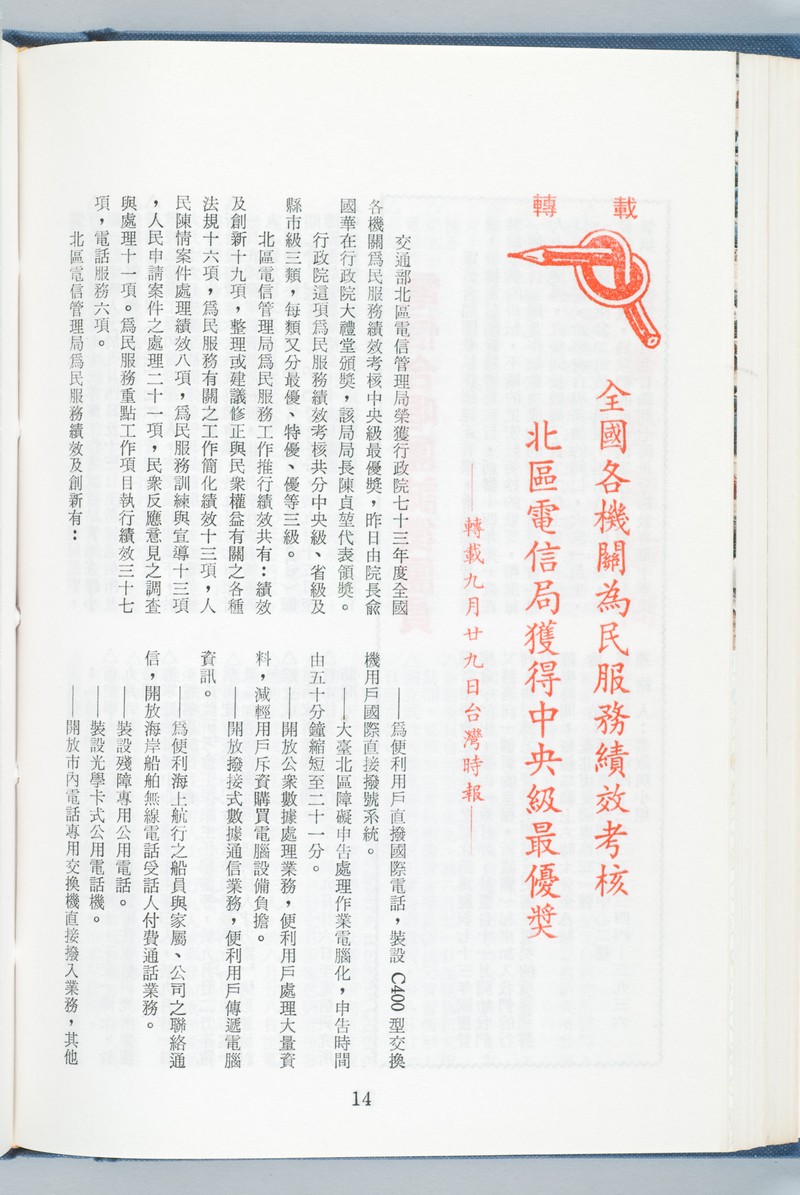 轉載
全國各機關為民服務績效考核
北區電信局獲得中央級最優獎
——轉載九月廿九日台灣時報——
交通部北區電信管理局榮獲行政院七十三年度全國
各機關爲民服務績效考核中央級最優獎，昨日由院長兪
國華在行政院大禮堂頒獎，該局局長陳貞堃代表領獎。
行政院這項爲民服務績效考核共分中央級、省級及
縣市級三類，每類又分最優、特優、優等三級。
北區電信管理局爲民服務工作推行績效共有：績效
及創新十九項，整理或建議修正與民衆權益有關之各種
法規十六項，爲民服務有關之工作簡化績效十三項，人
民陳情案件處理績效八項，爲民服務訓練與宣導十三項
，人民申請案件之處理二十一項，民衆反應意見之調查
與處理十一項。爲民服務重點工作項目執行績效三十七
項，電話服務六項。
北區電信管理局爲民服務績效及創新有：
——爲便利用戶直撥國際電話，裝設C400型交換
機用戶國際直接撥號系統。
——大臺北區障礙申告處理作業電腦化，申告時間
由五十分鐘縮短至二十一分。
——開放公衆數據處理業務，便利用戶處理大量資
料，減輕用戶斥資購買電腦設備負擔。
——開放撥接式數據通信業務，便利用戶傳遞電腦
資訊。
——爲便利海上航行之船員與家屬、公司之聯絡通
信，開放海岸船舶無線電話受話人付費通話業務。
——裝設殘障專用公用電話。
——裝設光學卡式公用電話機。
——開放市內電話專用交換機直接撥入業務，其他
14